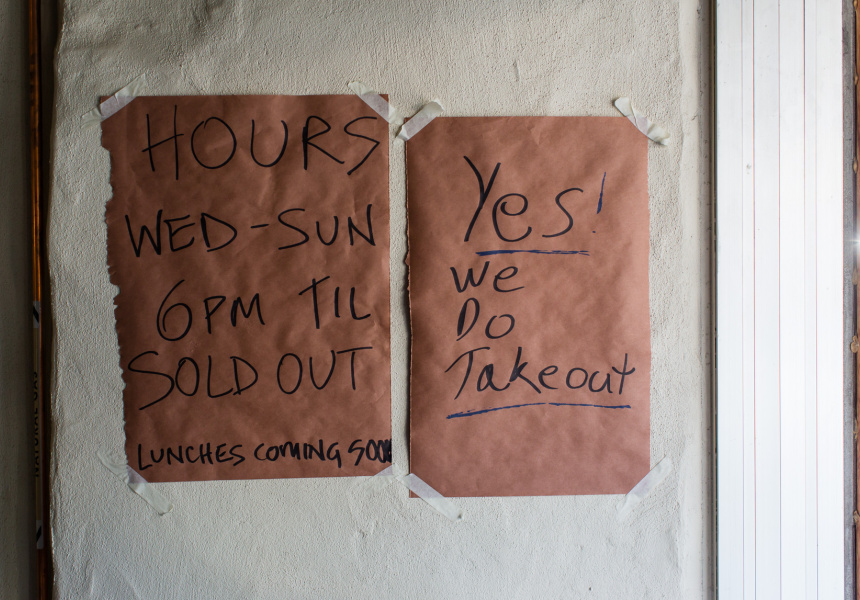 HOURS
WED-SUN
6PM TIL
SOLD OUT
LUNCHES COMING SOON
Yes!
We
Do
Takeout
NATURAL GAS